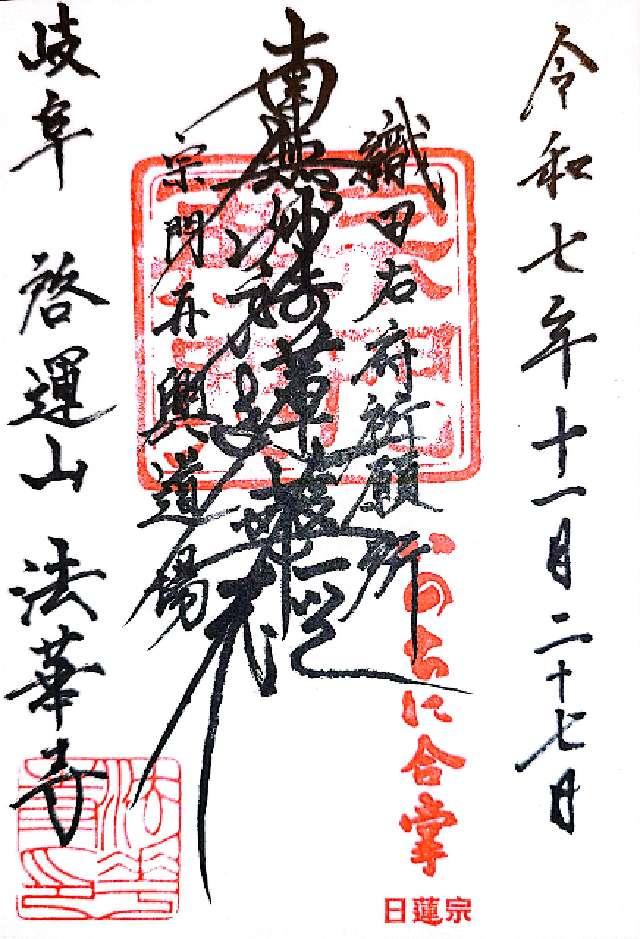 令和七年十一月二十七日
織田右府祈願所
いのちに合掌
日蓮宗
南無妙法蓮華経
宗門再興道場
岐阜 啓運山 法華寺
法華寺印